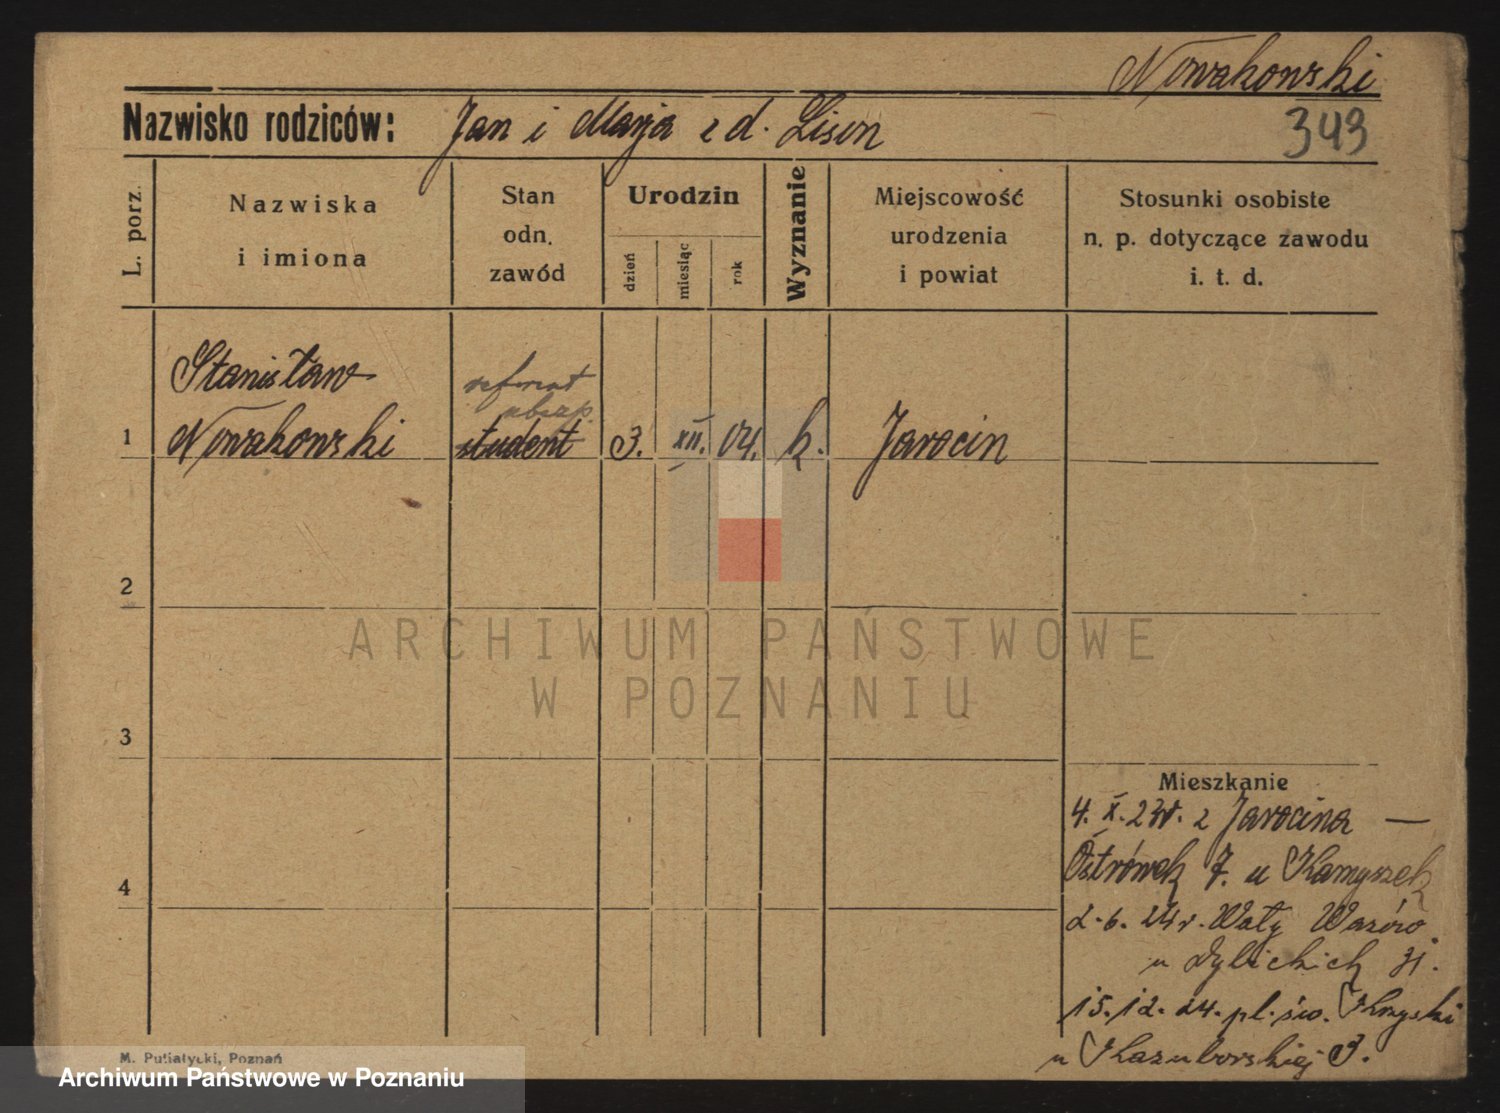 Nowakowski
Nazwisko rodziców: Jan i Marja z d. Lison
343
L. porz.
Nazwiska
i imiona
Stan
odn.
zawód
Urodzin
dzień
miesiąc
rok
Wyznanie
Miejscowość
urodzenia
i powiat
Stosunki osobiste
n. p. dotyczące zawodu
i. t. d.
Stanisław
referent
1 Nowakowski student 3. XII. 04. k. Jarocin
2
ARCHIWUM PAŃSTWOWE
W POZNANIU
3
Mieszkanie
4. X. 23r. z Jarocina —
Ostrówek 7. u Kamyszek
4
2.6.24r. Wały Wazów
u 31.
15.12.24. pl. św.
u 3.
M. Putiatycki, Poznań
Archiwum Państwowe w Poznaniu